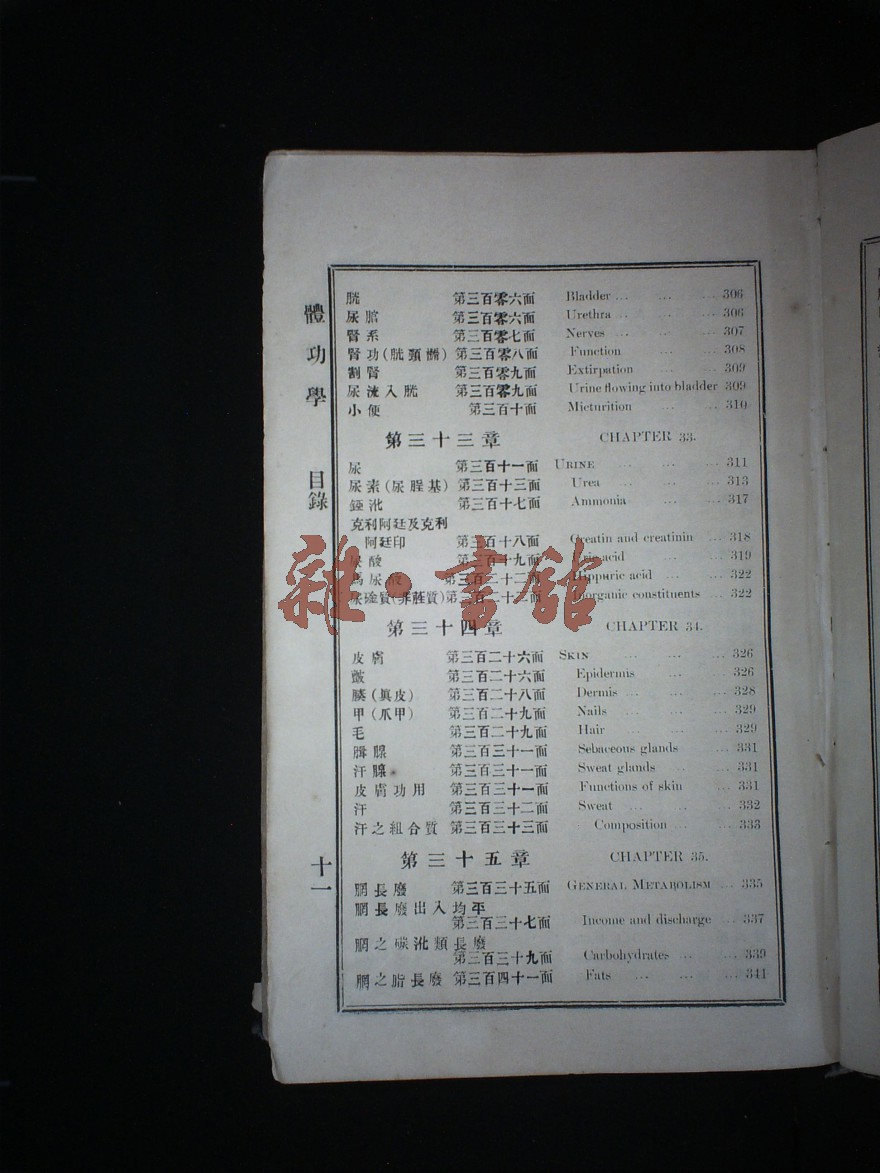 體功學 目錄 十一
胱 第三百零六面 Bladder ... ... ... 306
尿脂 第三百零六面 Urethra ... ... 306
腎系 第三百零七面 Nerves ... ... ... 307
腎功 第三百零八面 Function ... ... 308
割腎 第三百零九面 Extirpation ... ... 309
尿流入胱 第三百零九面 Urine flowing into bladder 309
小便 第三百十面 Micturition ... ... 310
第三十三章 CHAPTER 33.
尿 第三百十一面 URINE ... ... ... 311
尿素(尿脭基) 第三百十三面 Urea ... ... ... 313
第三百十七面 Ammonia ... ... 317
克利阿廷及克利
阿廷印 第三百十八面 Creatin and creatinin ... 318
尿酸 第三百十九面 Uric acid ... ... 319
馬尿酸 第三百二十二面 Hippuric acid ... ... 322
第三百二十二面 Inorganic constituents ... 322
第三十四章 CHAPTER 34.
皮膚 第三百二十六面 SKIN ... ... ... 326
第三百二十六面 Epidermis ... ... 326
(眞皮) 第三百二十八面 Dermis ... ... ... 328
甲(爪甲) 第三百二十九面 Nails ... ... ... 329
毛 第三百二十九面 Hair ... ... ... 329
第三百三十一面 Sebaceous glands ... 331
汗 第三百三十一面 Sweat glands ... ... 331
皮膚功用 第三百三十一面 Functions of skin ... 331
汗 第三百三十二面 Sweat ... ... ... 332
汗之組合質 第三百三十三面 Composition ... ... 333
第三十五章 CHAPTER 35.
長廢 第三百三十五面 GENERAL METABOLISM ... 335
長廢出入均平
第三百三十七面 Income and discharge ... 337
之碳 類長廢
第三百三十九面 Carbohydrates ... ... 339
之脂長廢 第三百四十一面 Fats ... ... ... 341
雜·書館